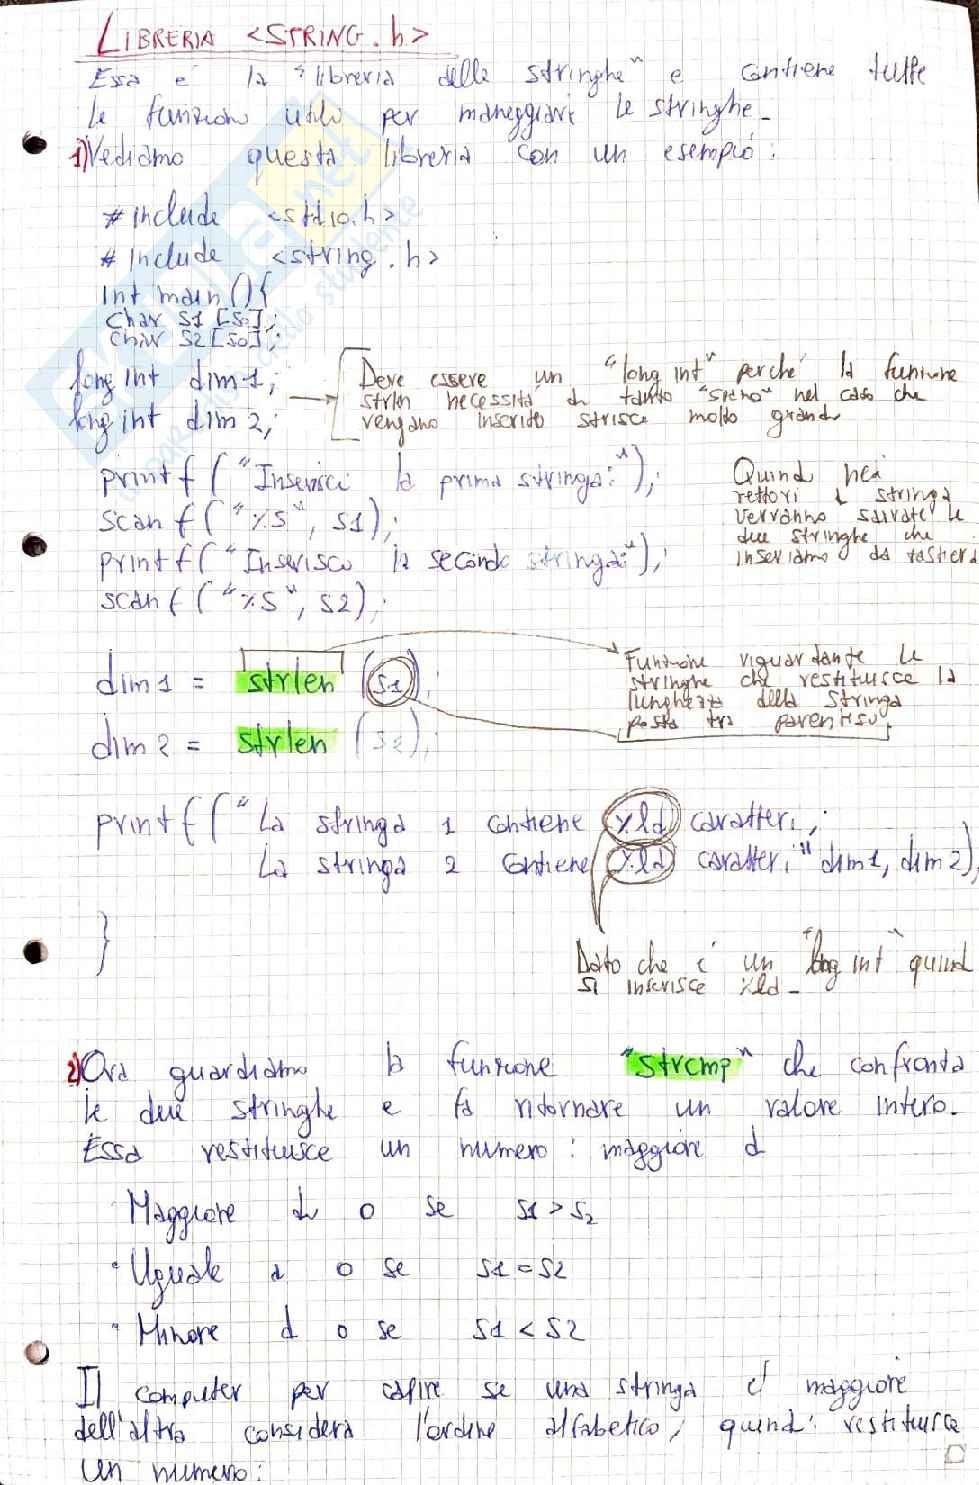 LIBRERIA <STRING.h>
Essa e' la "libreria delle stringhe" e contiene tutte
le funzioni utili per maneggiare le stringhe.
1) Vediamo questa libreria con un esempio:
# include <stdio.h>
# include <string.h>
int main (){
char S1 [50];
char S2 [50];
long int dim1;
long int dim2;
Deve essere un "long int" perche' la funzione
strlen necessita di tanto "spazio" nel caso che
vengano inserite strisce molto grandi
printf ("Inserisci la prima stringa:");
scanf ("%s", s1);
printf ("Inserisci la seconda stringa:");
scanf ("%s", s2);
Quindi nei
vettori stringa
verranno salvate le
due stringhe che
inseriamo da tastiera
dim1 = strlen (s1);
dim2 = strlen (s2);
Funzione riguardante le
stringhe che restituisce la
lunghezza della stringa
posta tra parentesi.
printf ("La stringa 1 contiene %ld caratteri,;
La stringa 2 contiene %ld caratteri" dim1, dim2);
}
Dato che è un "long int" quindi
si inserisce %ld -
2) Ora guardiamo la funzione "strcmp" che confronta
le due stringhe e fa ritornare un valore intero.
Essa restituisce un numero: maggiore d
• Maggiore di 0 se S1 > S2
• Uguale a 0 se S1 = S2
• Minore d 0 se S1 < S2
Il computer per capire se una stringa e' maggiore
dell'altra considera l'ordine alfabetico, quindi restituisce
un numero:
skuola.net